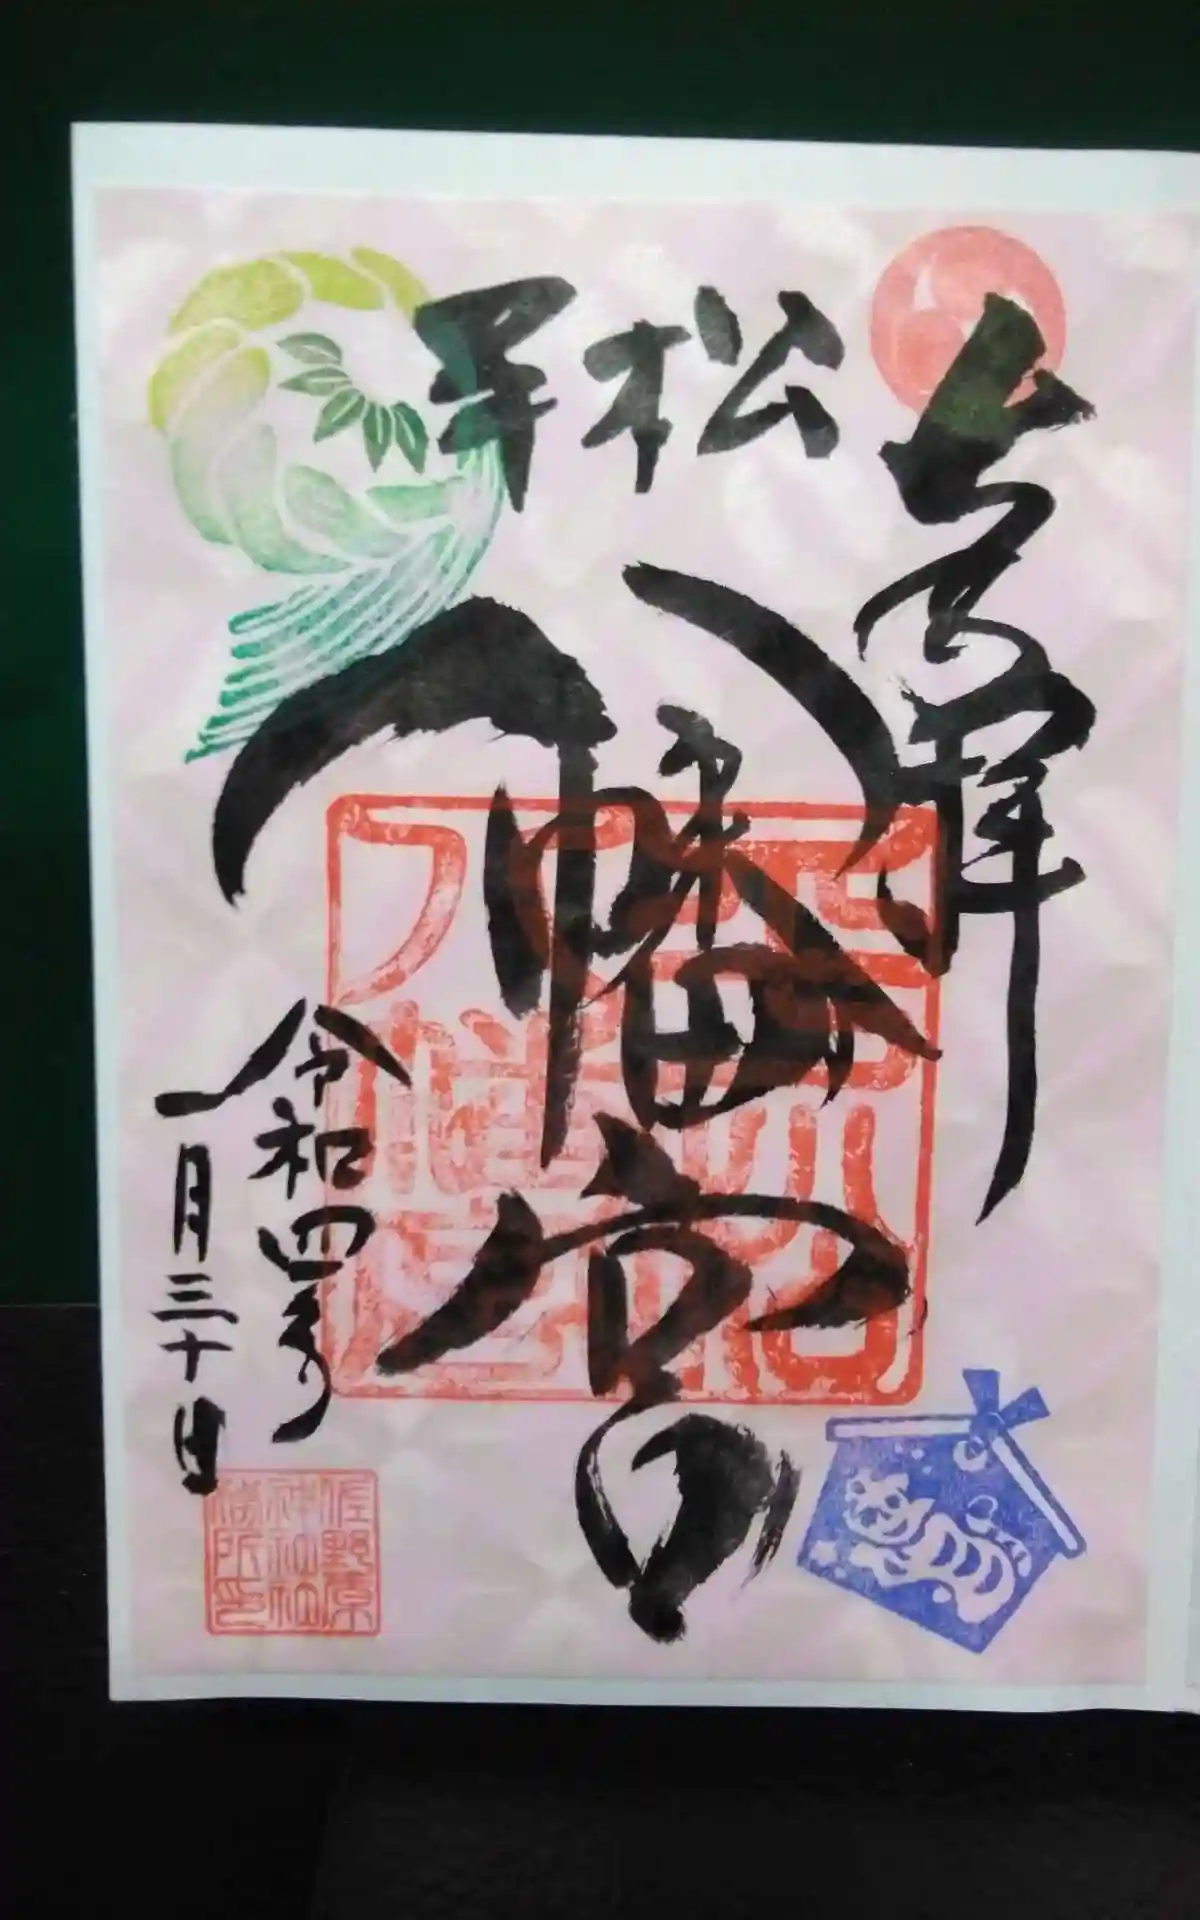 奉拝
平松
八幡宮
令和四年
一月三十日
佐野原
神社社
務所印